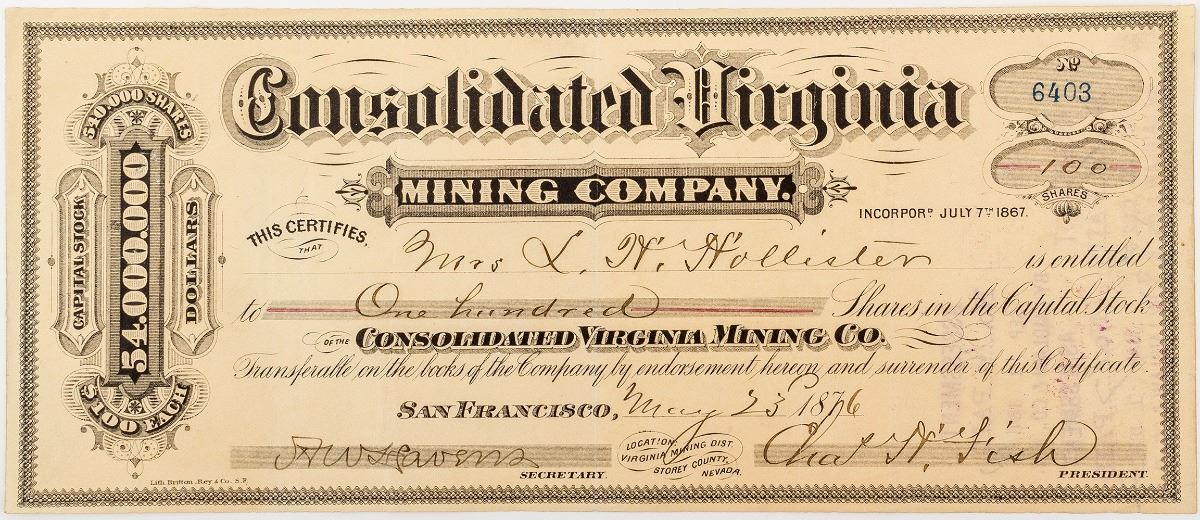 Consolidated Virginia
MINING COMPANY.
Nº
6403
100
SHARES
INCORPORD JULY 7TH 1867.
540,000 SHARES
CAPITAL STOCK
54,000,000
DOLLARS
$100 EACH
THIS CERTIFIES,
THAT
Mrs L. N. Hollister is entitled
to One hundred Shares in the Capital Stock
OF THE CONSOLIDATED VIRGINIA MINING CO.
Transferable on the books of the Company by endorsement hereon and surrender of this Certificate.
SAN FRANCISCO, May 23 1876
A W Havens
SECRETARY.
LOCATION:
VIRGINIA MINING DIST.
STOREY COUNTY,
NEVADA.
Chas H. Fish
PRESIDENT.
Lith. Britton, Rey & Co. S.F.